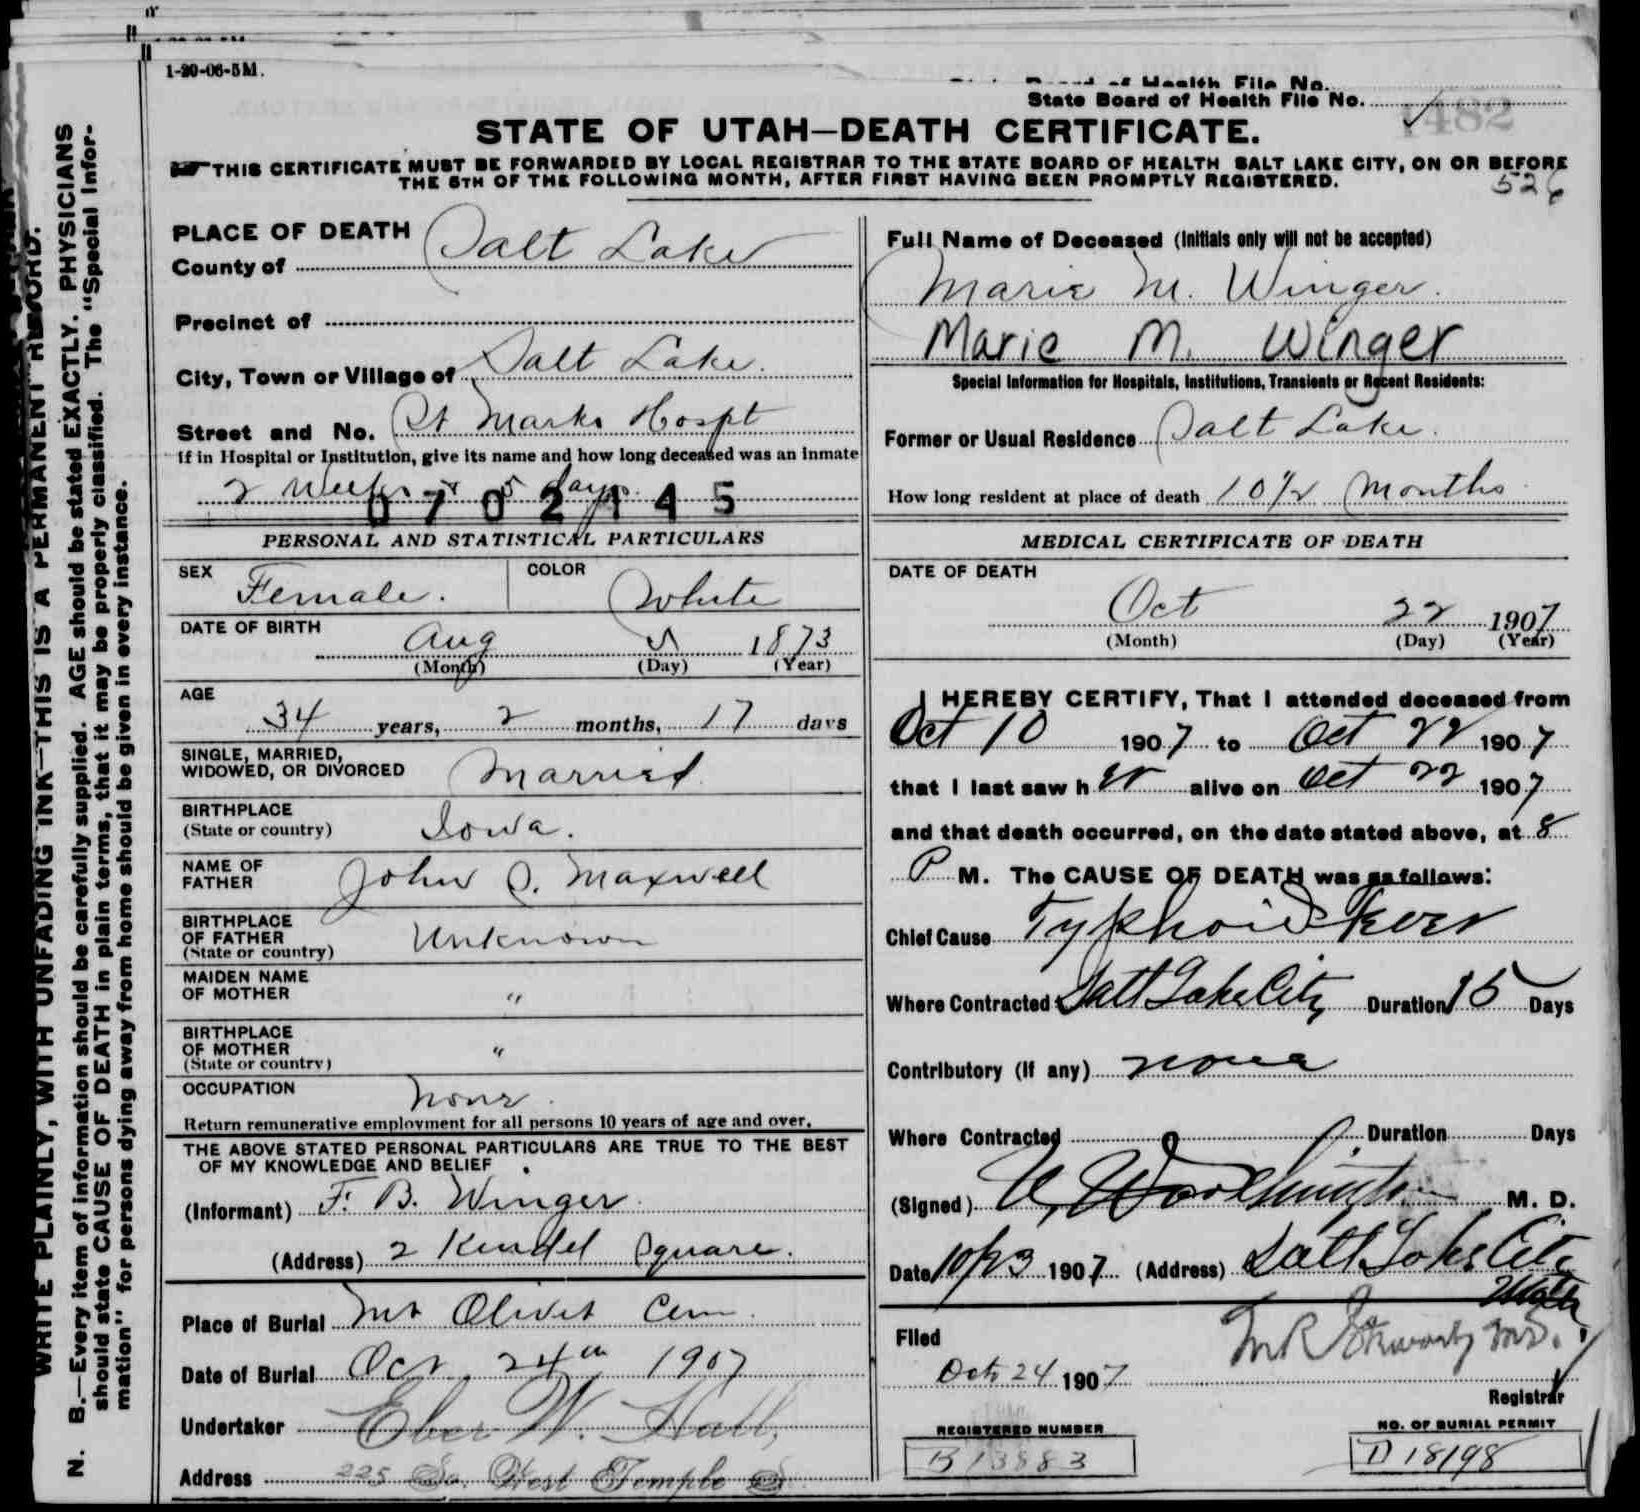 1-20-06-5M.
State Board of Health File No.
1482
STATE OF UTAH—DEATH CERTIFICATE.
THIS CERTIFICATE MUST BE FORWARDED BY LOCAL REGISTRAR TO THE STATE BOARD OF HEALTH SALT LAKE CITY, ON OR BEFORE
THE 5TH OF THE FOLLOWING MONTH, AFTER FIRST HAVING BEEN PROMPTLY REGISTERED.
526
WRITE PLAINLY, WITH UNFADING INK—THIS IS A PERMANENT RECORD.
N. B.—Every item of information should be carefully supplied. AGE should be stated EXACTLY. PHYSICIANS
should state CAUSE OF DEATH in plain terms, that it may be properly classified. The "Special Infor-
mation" for persons dying away from home should be given in every instance.
PLACE OF DEATH
County of Salt Lake
Precinct of
City, Town or Village of Salt Lake.
Street and No. St Marks Hospt
If in Hospital or Institution, give its name and how long deceased was an inmate
2 Weeks & 5 days.
0702145
PERSONAL AND STATISTICAL PARTICULARS
SEX Female. COLOR White
DATE OF BIRTH Aug 5 1873
(Month) (Day) (Year)
AGE
34 years, 2 months, 17 days
SINGLE, MARRIED,
WIDOWED, OR DIVORCED Married
BIRTHPLACE
(State or country) Iowa.
NAME OF
FATHER John S. Maxwell
BIRTHPLACE
OF FATHER Unknown
(State or country)
MAIDEN NAME
OF MOTHER "
BIRTHPLACE
OF MOTHER "
(State or country)
OCCUPATION None.
Return remunerative employment for all persons 10 years of age and over.
THE ABOVE STATED PERSONAL PARTICULARS ARE TRUE TO THE BEST
OF MY KNOWLEDGE AND BELIEF
(Informant) F. B. Winger
(Address) 2 Kendel Square.
Place of Burial Mt Olivet Cem.
Date of Burial Oct 24th 1907
Undertaker Eber W. Hall,
Address 225 So. West Temple St
Full Name of Deceased (Initials only will not be accepted)
Marie M. Winger.
Marie M. Winger
Special Information for Hospitals, Institutions, Transients or Recent Residents:
Former or Usual Residence Salt Lake.
How long resident at place of death 10½ Months
MEDICAL CERTIFICATE OF DEATH
DATE OF DEATH
Oct 22 1907
(Month) (Day) (Year)
I HEREBY CERTIFY, That I attended deceased from
Oct 10 1907 to Oct 22 1907
that I last saw her alive on Oct 22 1907
and that death occurred, on the date stated above, at 8
P M. The CAUSE OF DEATH was as follows:
Chief Cause Typhoid Fever
Where Contracted Salt Lake City Duration 15 Days
Contributory (If any) none
Where Contracted Duration Days
(Signed) Worthington M. D.
Date 10/23 1907 (Address) Salt Lake City
Utah
Filed
Oct 24 1907
Registrar
REGISTERED NUMBER
B 13883
NO. OF BURIAL PERMIT
D 18198